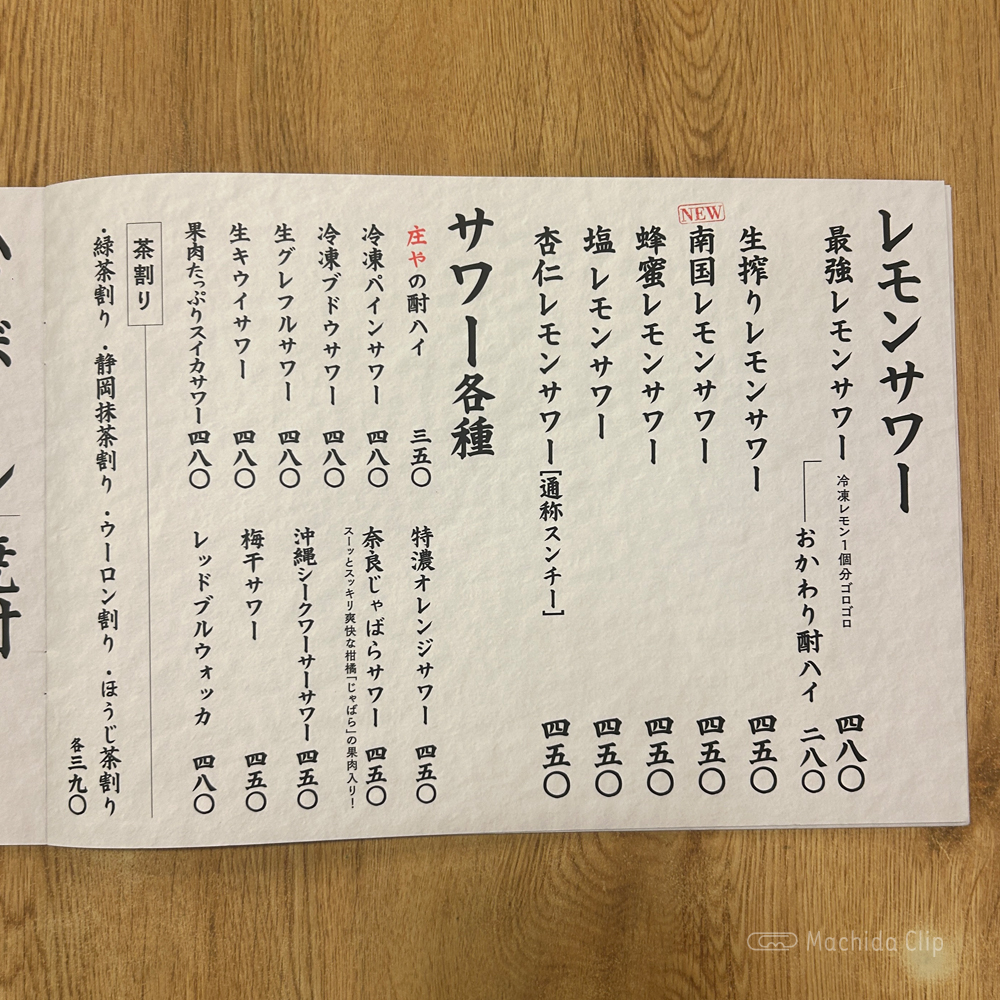 レモンサワー
最強レモンサワー 四八〇
冷凍レモン1個分ゴロゴロ
おかわり酎ハイ 二八〇
生搾りレモンサワー 四五〇
NEW
南国レモンサワー 四五〇
蜂蜜レモンサワー 四五〇
塩レモンサワー 四五〇
杏仁レモンサワー[通称スンチー] 四五〇
サワー各種
庄やの酎ハイ 三五〇
冷凍パインサワー 四八〇
冷凍ブドウサワー 四八〇
生グレフルサワー 四八〇
生キウイサワー 四八〇
果肉たっぷりスイカサワー 四八〇
特濃オレンジサワー 四五〇
奈良じゃばらサワー 四五〇
スーッとスッキリ爽快な柑橘「じゃばら」の果肉入り!
沖縄シークワーサーサワー 四五〇
梅干サワー 四五〇
レッドブルウォッカ 四八〇
茶割り
・緑茶割り ・静岡抹茶割り ・ウーロン割り ・ほうじ茶割り
各三九〇
Machida Clip